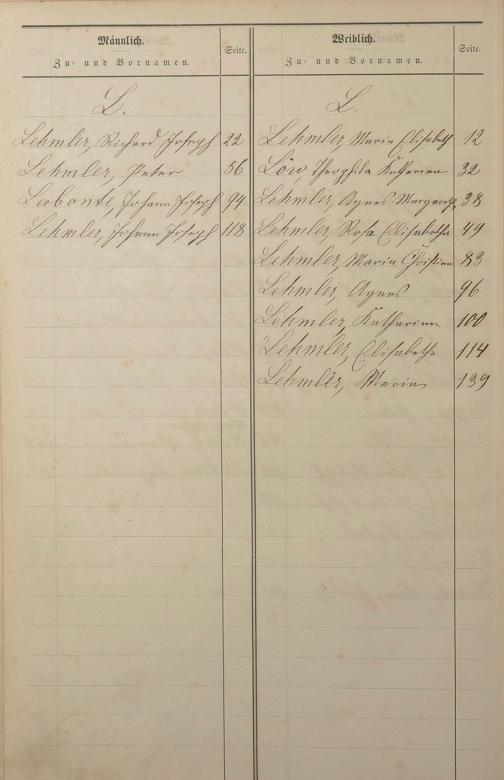 Männlich.
Zu- und Vornamen.
Seite.
L.
Lehmler, Richard Joseph 22
Lehmler, Peter 56
Labonte, Johann Joseph 94
Lehmler, Johann Joseph 118
Weiblich.
Zu- und Vornamen.
Seite.
L.
Lehmler, Maria Elisabeth 12
Löw, Theophila Katharina 32
Lehmler, Agnes Margaretha 38
Lehmler, Rosa Elisabetha 49
Lehmler, Maria Christina 83
Lehmler, Agnes 96
Lehmler, Katharina 100
Lehmler, Elisabetha 114
Lehmler, Maria 139